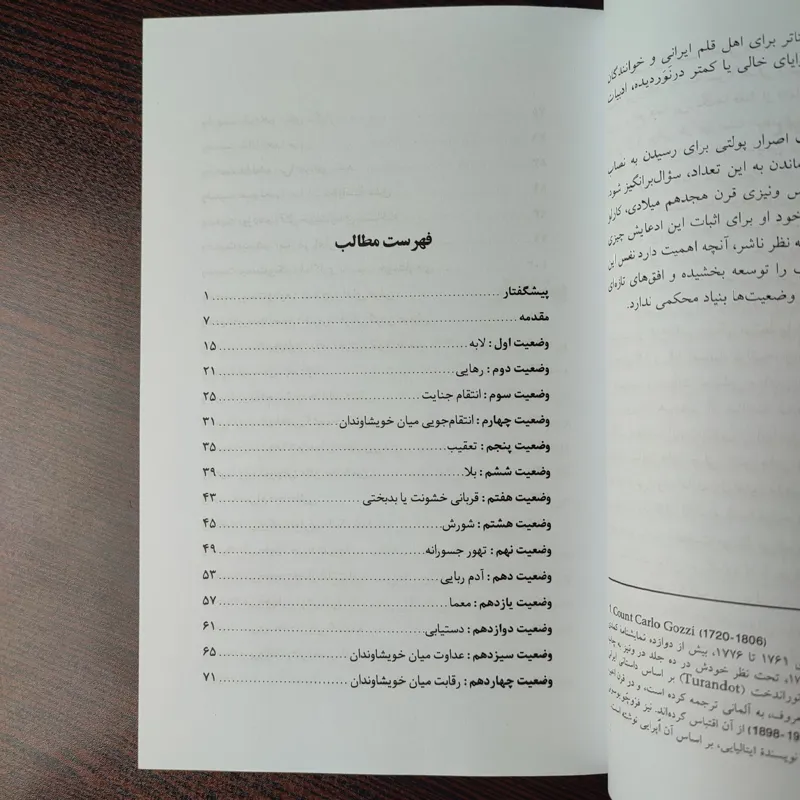 فهرست مطالب
پیشگفتار ........ ۱
مقدمه ........ ۷
وضعیت اول : لابه ........ ۱۵
وضعیت دوم : رهایی ........ ۲۱
وضعیت سوم : انتقام جنایت ........ ۲۵
وضعیت چهارم : انتقام‌جویی میان خویشاوندان ........ ۳۱
وضعیت پنجم : تعقیب ........ ۳۵
وضعیت ششم : بلا ........ ۳۹
وضعیت هفتم : قربانی خشونت یا بدبختی ........ ۴۳
وضعیت هشتم : شورش ........ ۴۵
وضعیت نهم : تهور جسورانه ........ ۴۹
وضعیت دهم : آدم ربایی ........ ۵۳
وضعیت یازدهم : معما ........ ۵۷
وضعیت دوازدهم : دستیابی ........ ۶۱
وضعیت سیزدهم : عداوت میان خویشاوندان ........ ۶۵
وضعیت چهاردهم : رقابت میان خویشاوندان ........ ۷۱
برای اهل قلم ایرانی و خوانندگان
خالی یا کمتر درنوردیده، ادبیات
اصرار پولتی برای رسیدن به نصاب
ماندن به این تعداد، سؤال‌برانگیز
ونیزی قرن هجدهم میلادی، کارلو
خود او برای اثبات این ادعایش چیزی
نظر ناشر، آنچه اهمیت دارد نفس این
را توسعه بخشیده و افق‌های تازه‌ای
وضعیت‌ها بنیاد محکمی ندارد.
Count Carlo Gozzi (1720-1806)
۱۷۶۱ تا ۱۷۷۶، بیش از دوازده نمایشنامه
تحت نظر خودش در ده جلد در ونیز به
توراندخت (Turandot) بر اساس داستانی
به آلمانی ترجمه کرده است، و در قرن
از آن اقتباس کرده‌اند. نیز
نویسندهٔ ایتالیایی، بر اساس آن اپرایی نوشته است.